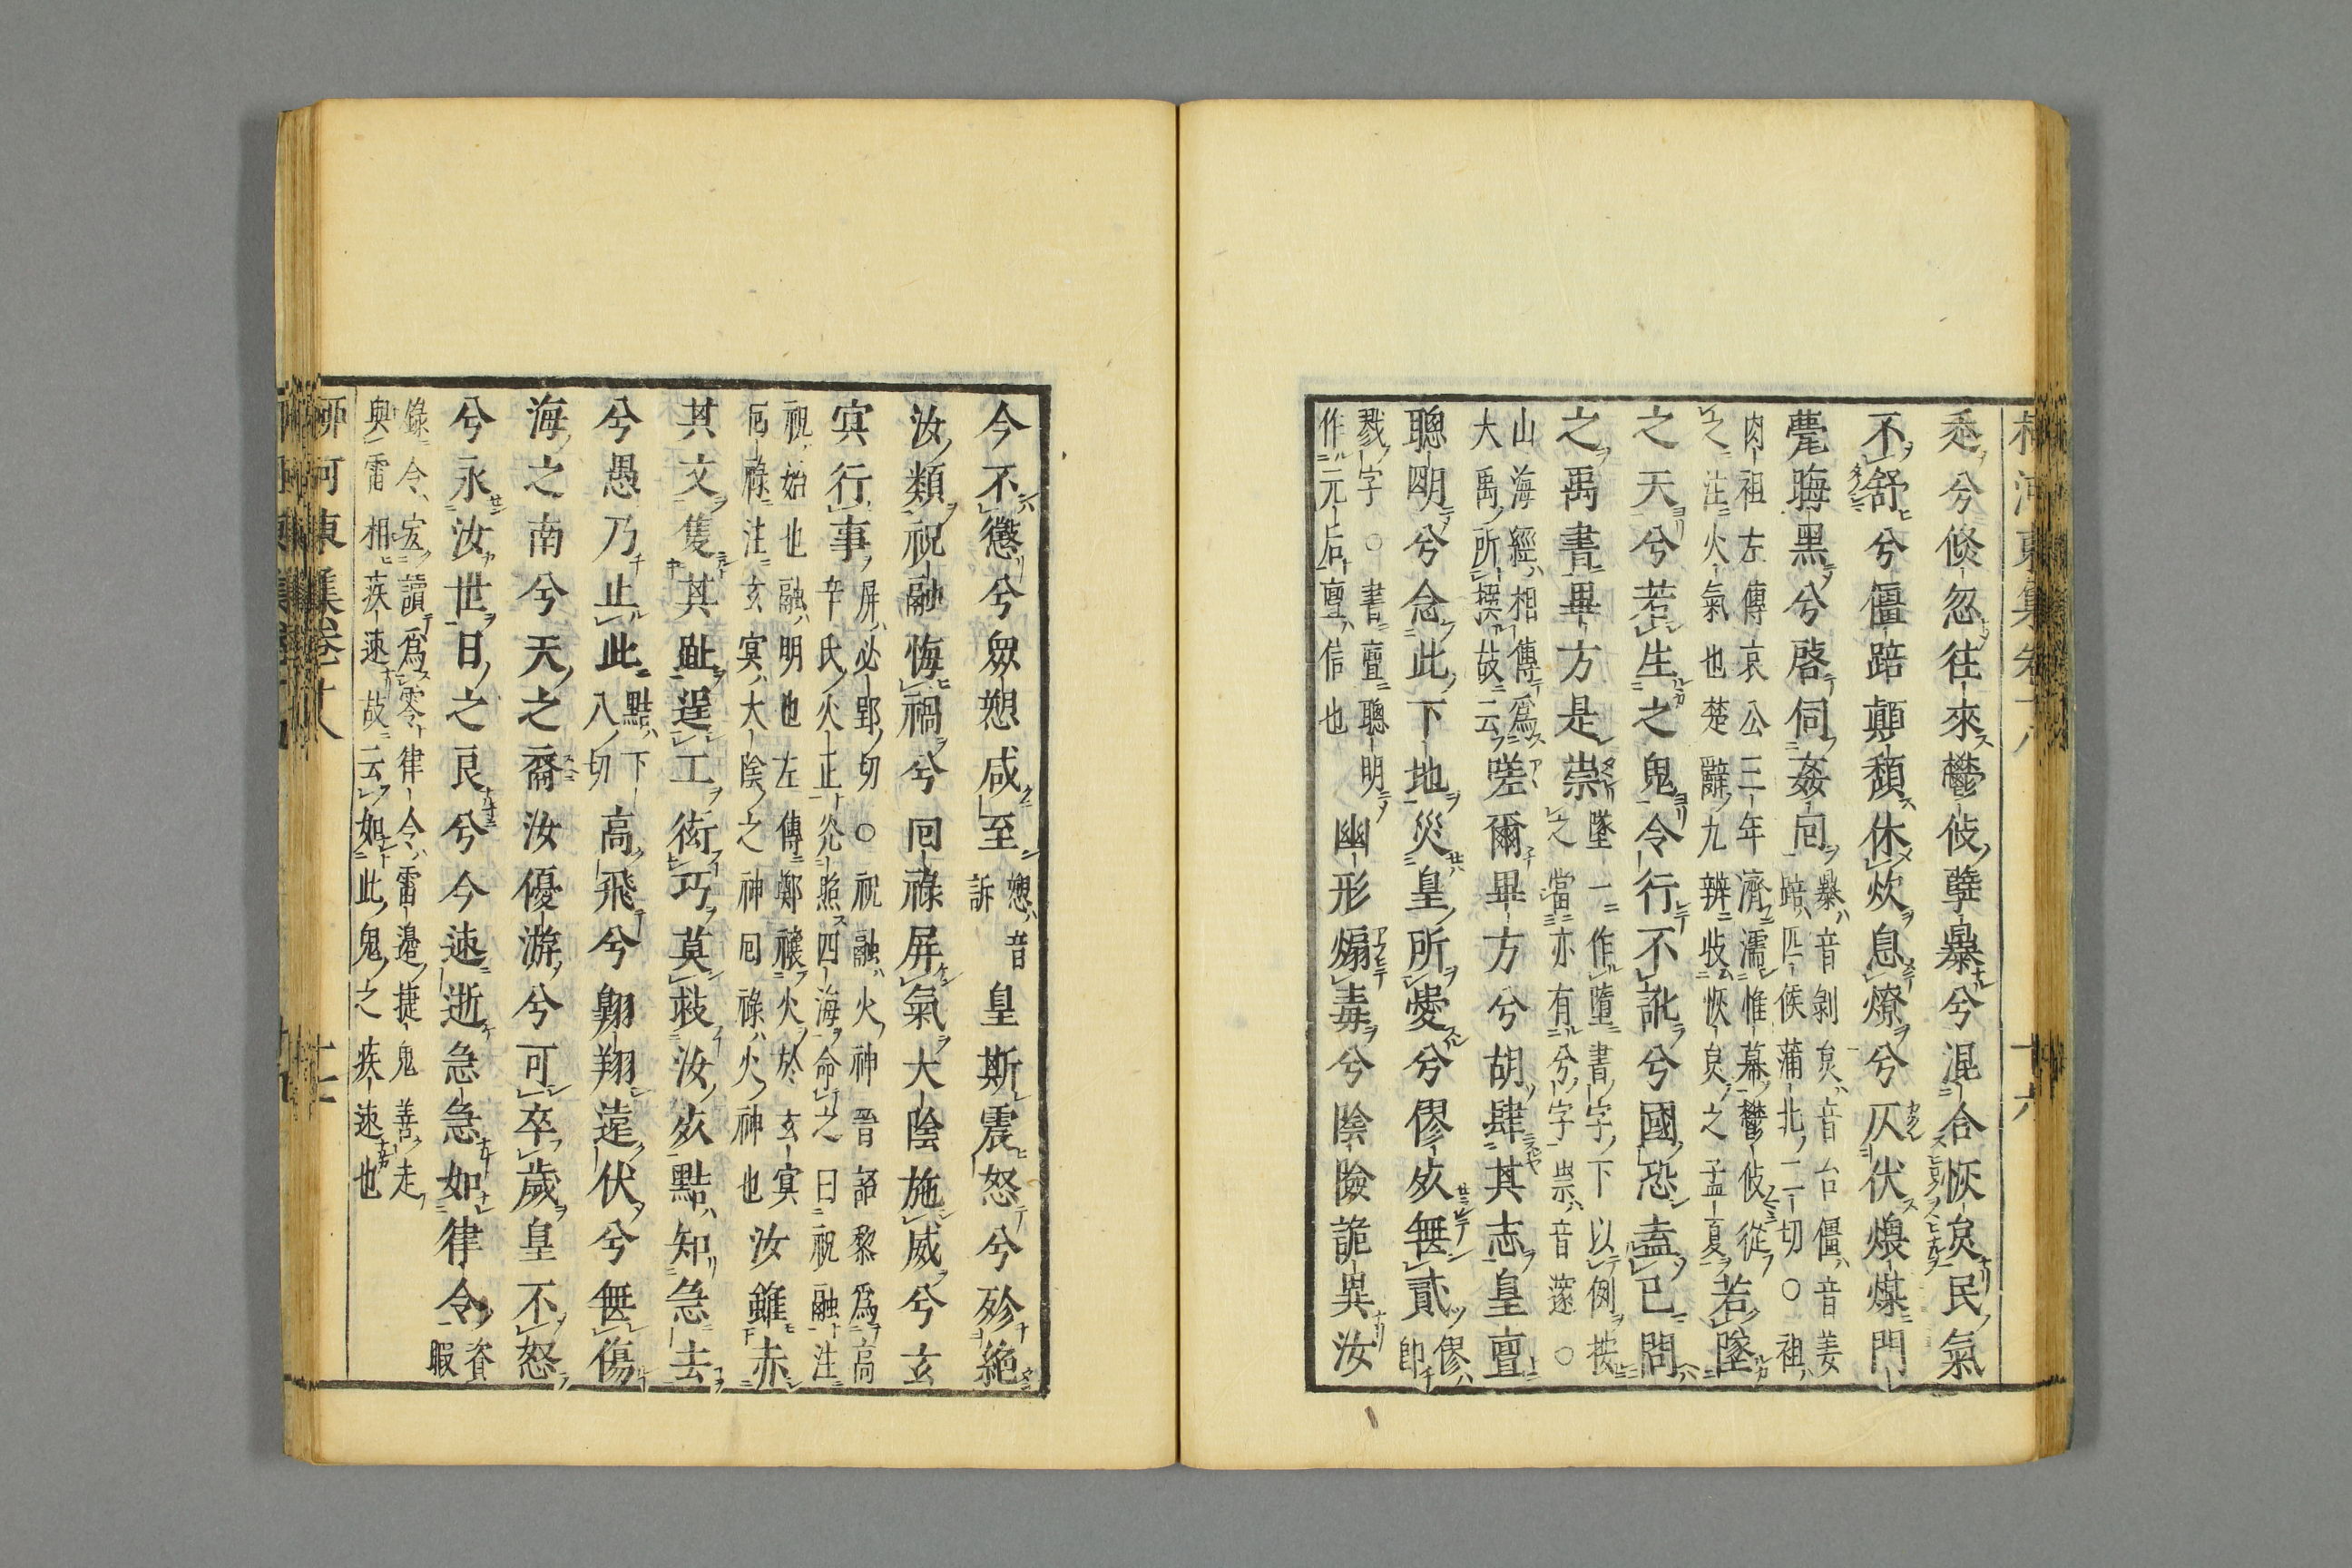 柳河東集卷十八　十六
丞兮倐忽往來鬱攸孽暴兮混合恢炱民氣
不舒兮僵踣顛頽休炊息燎兮仄伏煨煤門
甍晦黑兮啓伺姦回
暴音剝炱音台僵音姜
踣匹候蒲北二切○祖
肉祖左傳哀公三年濟濡惟幕鬱攸從
之注火氣也楚辭九辨收恢炱之孟夏
若墜
之天兮若生之鬼令行不訛兮國恐盍已問
之禹書畢方是祟
墜一作墮書字下以例按
之當亦有兮字祟音邃○
山海經相傳爲
大禹所撰故云
嗟爾畢方兮胡肆其志皇亶
聰明兮念此下地災皇所愛兮僇死無貳
僇
卽
戮字○書亶聰明
作元后亶信也
幽形煽毒兮陰險詭異汝
今不懲兮衆愬咸至
愬音
訴
皇斯震怒兮殄絶
汝類祝融悔禍兮回祿屏氣大陰施威兮玄
冥行事
屏必郢切○祝融火神晉語黎爲高
辛氏火正光照四海命之曰祝融注
祝始也融明也左傳鄭禳火於玄冥
回祿注玄冥大陰之神回祿火神也
汝雖赤
其文隻其趾逞工衒巧莫救汝死黠知急去
兮愚乃止此
黠下
八切
高飛兮翱翔遠伏兮無傷
海之南兮天之裔汝優游兮可卒歲皇不怒
兮永汝世日之良兮今速逝急急如律令
資
暇
錄令宜讀爲零律令雷邊捷鬼善走
與雷相疾速故云如此鬼之疾速也
柳河東集卷十八　十七